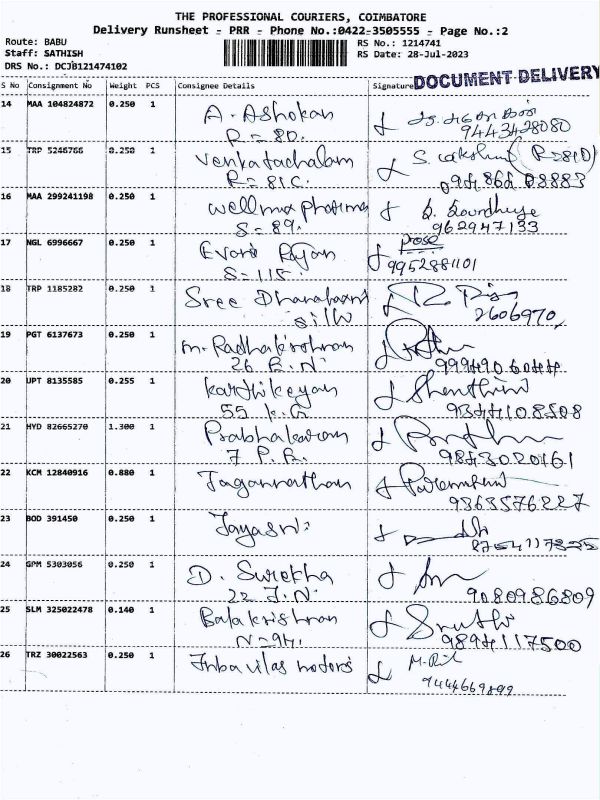 THE PROFESSIONAL COURIERS, COIMBATORE
Delivery Runsheet - PRR - Phone No.:0422-3505555 - Page No.:2
Route: BABU RS No.: 1214741
Staff: SATHISH RS Date: 28-Jul-2023
DRS No.: DCJB121474102
DOCUMENT DELIVERY
S No Consignment No Weight PCS Consignee Details Signature
14 MAA 104824872 0.250 1 A. Ashokan
R=80. 9443428080
15 TRP 5246766 0.250 1 Venkatachalam S. (R=810)
R=81C. 08883
16 MAA 299241198 0.250 1 Wellmax pharma
S=89. 962947133
17 NGL 6996667 0.250 1 Evara Rajan
S=115. 9952881101
18 TRP 1185282 0.250 1 Sree Dhanalaxmi
silk 2606970
19 PGT 6137673 0.250 1 M. Radhakrishnan
26 R.N
20 UPT 8135585 0.255 1 Karthikeyan Shenthini
55 K.G 9344108508
21 HYD 82665270 1.300 1 Prabhakaran
7 P.R. 9843020161
22 KCM 12840916 0.880 1 Jagannathan
9363576227
23 BOD 391450 0.250 1 Jayasri
24 GPM 5303056 0.250 1 D. Surekha
22 J.N. 9080986809
25 SLM 325022478 0.140 1 Balakrishnan Sruthi
N=94. 9894117500
26 TRZ 30022563 0.250 1 Inba vilas motors
9444669899